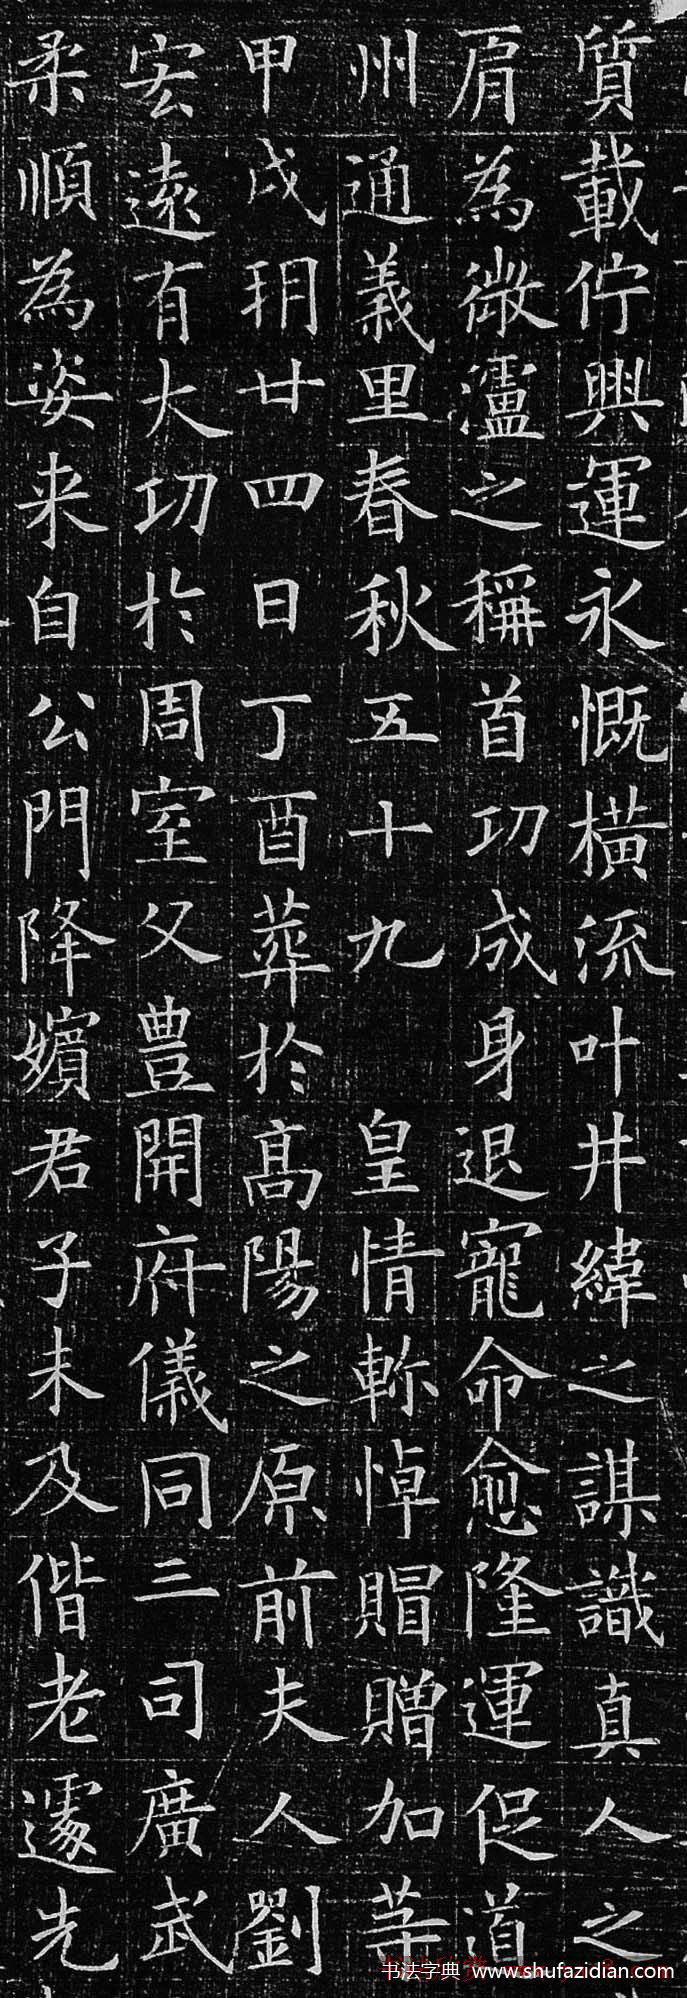 質載佇興運永慨橫流叶井緯之謀識真人之
屑為微瀘之稱首功成身退寵命愈隆運促道
州通義里春秋五十九 皇情軫悼賵贈加等
甲戌玥廿四日丁酉葬於高陽之原前夫人劉
宏遠有大功於周室父豊開府儀同三司廣武
柔順為姿来自公門降嬪君子未及偕老遽先
书法字典 www.shufazidian.com